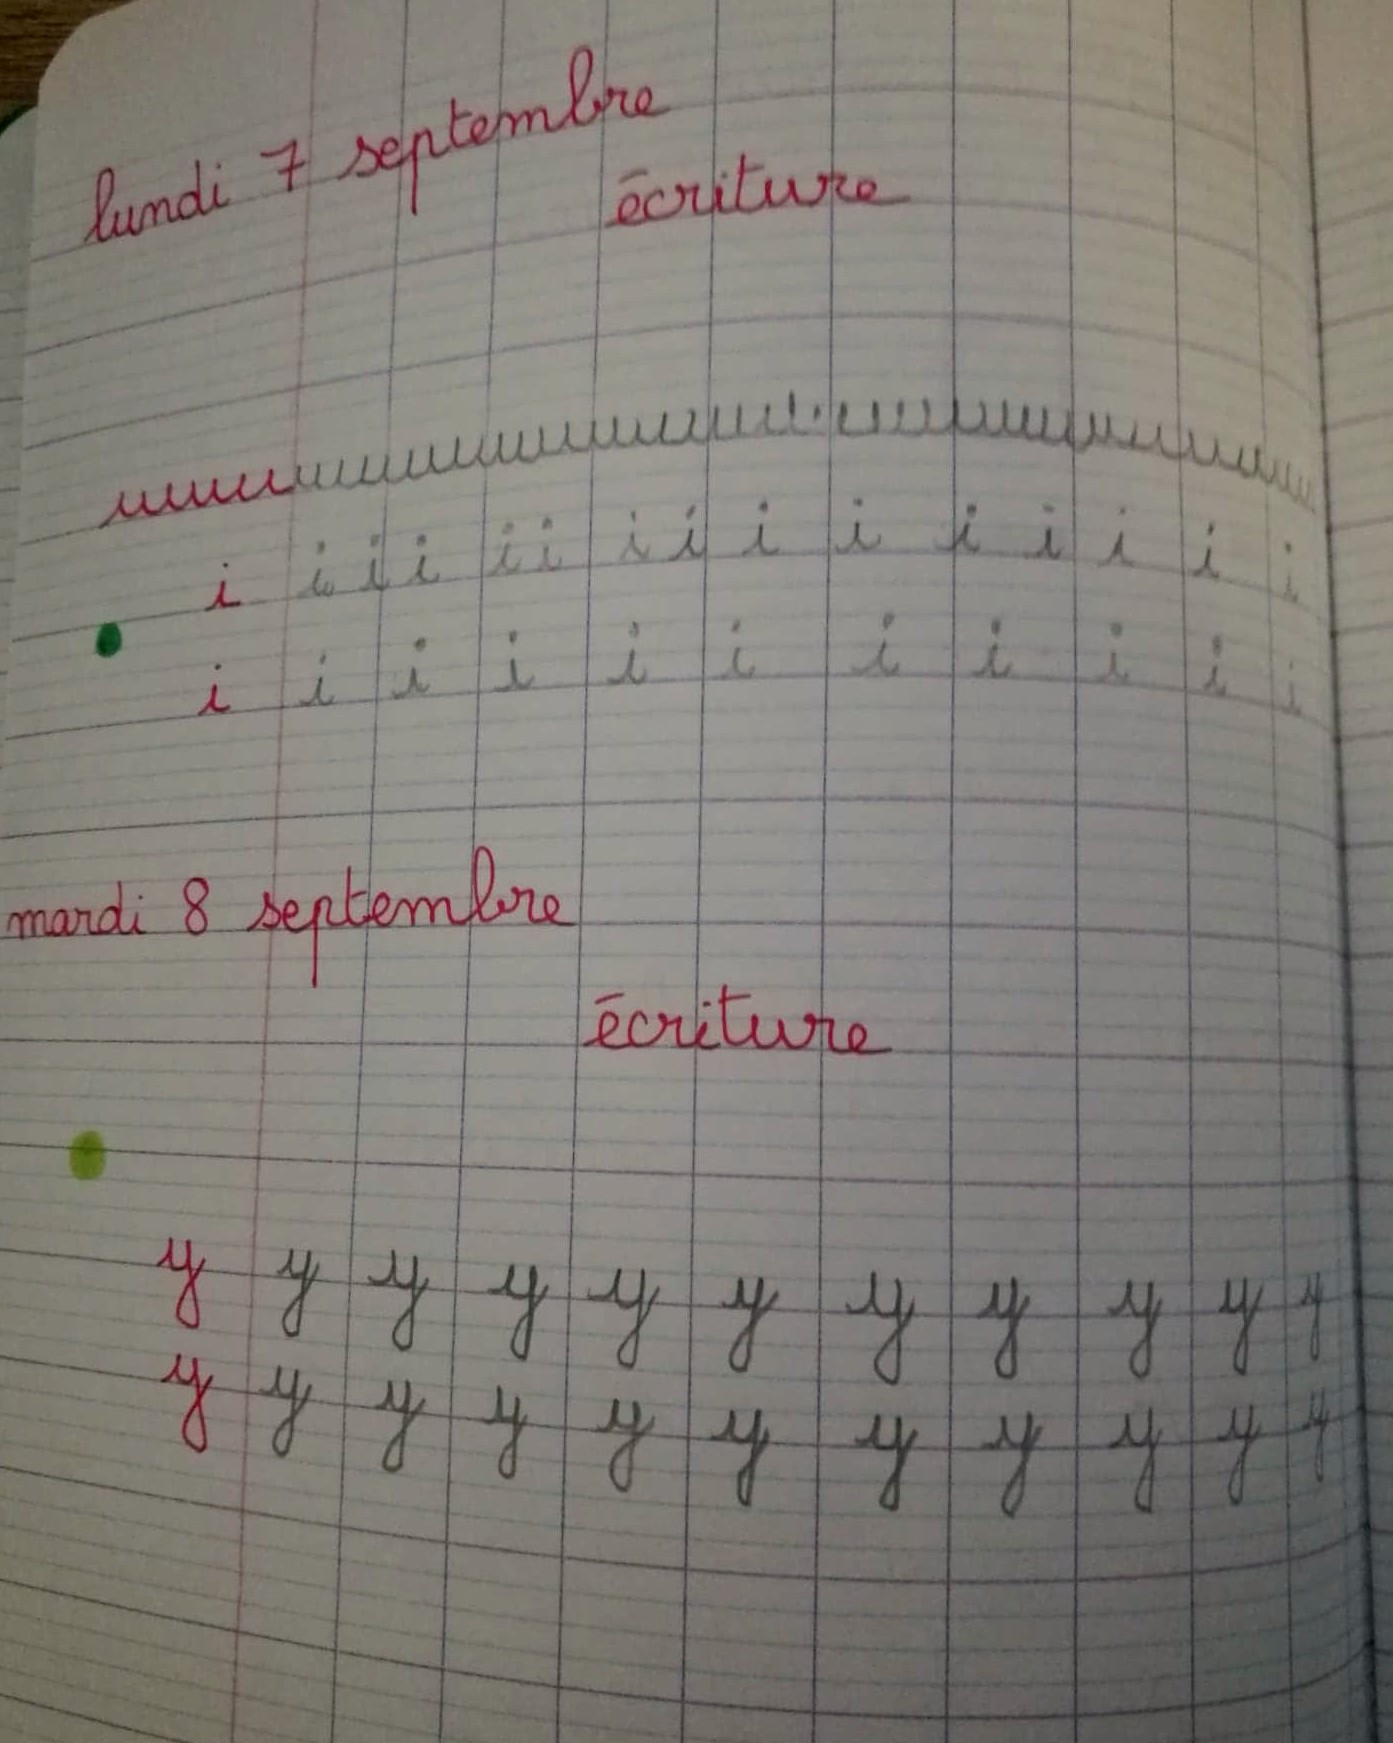 lundi 7 septembre
écriture
uuuuuuuuuuuuuuuuuuuuuuuuuuuuuu
i i i i i i i i i i i i i i i
i i i i i i i i i i i
mardi 8 septembre
écriture
y y y y y y y y y y y
y y y y y y y y y y y